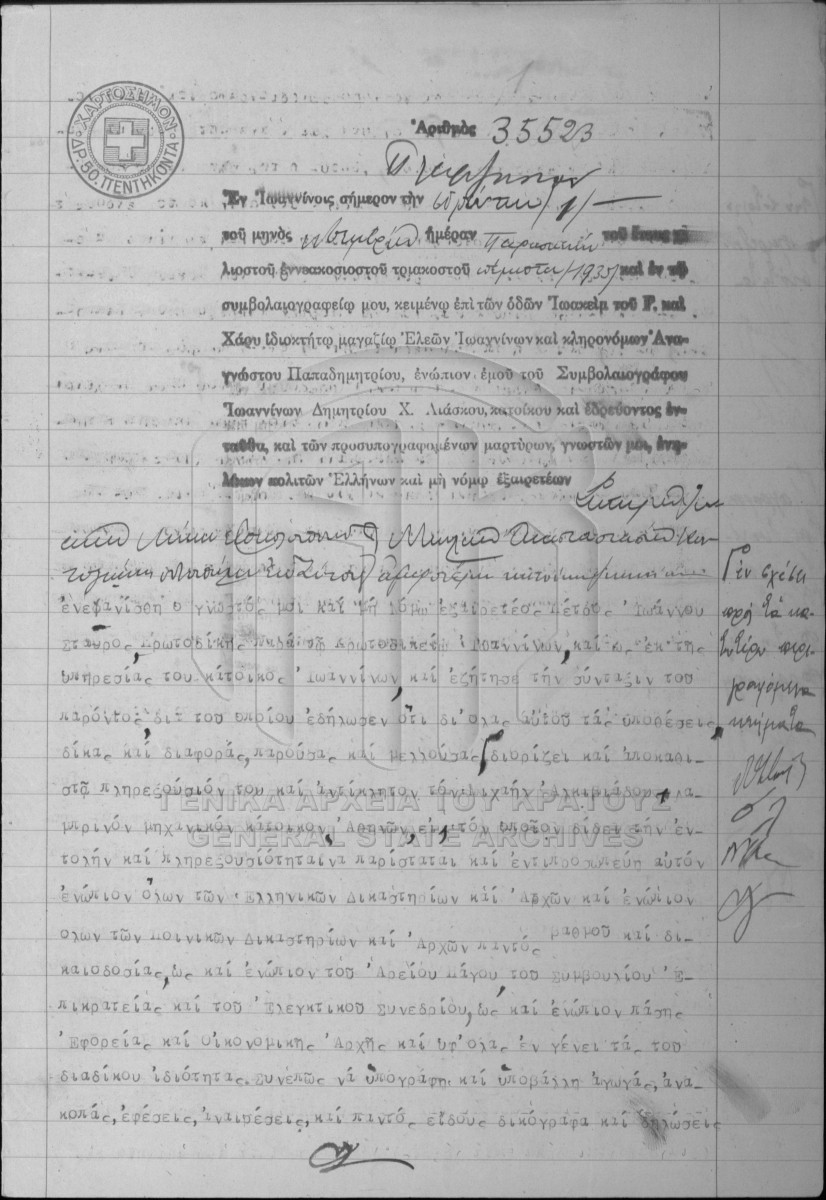 ΧΑΡΤΟΣΗΜΟΝ
ΔΡ. 50. ΠΕΝΤΗΚΟΝΤΑ
Ἀριθμὸς 35523
Πληρεξούσιον
Ἐν Ἰωαννίνοις σήμερον τὴν
τοῦ μηνὸς ἡμέραν Παρασκευὴν τοῦ ἔτους χι-
λιοστοῦ ἐννεακοσιοστοῦ τριακοστοῦ πέμπτου /1935/ καὶ ἐν τῷ
συμβολαιογραφείῳ μου, κειμένῳ ἐπὶ τῶν ὁδῶν Ἰωακεὶμ τοῦ Γ. καὶ
Χάρυ ἰδιοκτήτῳ μαγαζίῳ Ἐλεῶν Ἰωαννίνων καὶ κληρονόμων Ἀνα-
γνώστου Παπαδημητρίου, ἐνώπιον ἐμοῦ τοῦ Συμβολαιογράφου
Ἰωαννίνων Δημητρίου Χ. Λιάσκου, κατοίκου καὶ ἑδρεύοντος ἐν-
ταῦθα, καὶ τῶν προσυπογραφομένων μαρτύρων, γνωστῶν μοι, ἐνη-
λίκων πολιτῶν Ἑλλήνων καὶ μὴ νόμῳ ἐξαιρετέων
ἐνεφανίσθη ὁ γνωστός μοι καί μή νόμῳ ἐξαιρετέος Πέτρος Ἰωάννου
Σταῦρος, Πρωτοδίκης παρά τῷ Πρωτοδικείῳ Ἰωαννίνων, καί ὡς ἐκ τῆς
ὑπηρεσίας του κάτοικος Ἰωαννίνων, καί ἐζήτησε τήν σύνταξιν τοῦ
παρόντος διά τοῦ ὁποίου ἐδήλωσεν ὅτι δι' ὅλας αὐτοῦ τάς ὑποθέσεις,
δίκας καί διαφοράς, παρούσας καί μελλούσας, διορίζει καί ἀποκαθι-
στᾷ πληρεξούσιόν του καί ἀντίκλητον τόν Μιχαήλ Ἀλκιβιάδου Λα-
μπρινόν μηχανικόν κάτοικον Ἀθηνῶν, εἰς τόν ὁποῖον δίδει τήν ἐν-
τολήν καί πληρεξουσιότητα νά παρίσταται καί ἀντιπροσωπεύῃ αὐτόν
ἐνώπιον ὅλων τῶν Ἑλληνικῶν Δικαστηρίων καί Ἀρχῶν καί ἐνώπιον
ὅλων τῶν Ποινικῶν Δικαστηρίων καί Ἀρχῶν παντός βαθμοῦ καί δι-
καιοδοσίας, ὡς καί ἐνώπιον τοῦ Ἀρείου Πάγου τοῦ Συμβουλίου Ἐ-
πικρατείας καί τοῦ Ἐλεγκτικοῦ Συνεδρίου, ὡς καί ἐνώπιον πάσης
Ἐφορείας καί Οἰκονομικῆς Ἀρχῆς καί ὑφ' ὅλας ἐν γένει τάς τοῦ
διαδίκου ἰδιότητας. Συνεπῶς νά ὑπογράφῃ καί ὑποβάλλῃ ἀγωγάς, ἀνα-
κοπάς, ἐφέσεις, ἀναιρέσεις, καί παντός εἴδους δικόγραφα καί δηλώσεις
ἐν σχέσει
πρὸς τὰ κα-
τωτέρω περι-
γραφόμενα
κτήματα
ΓΕΝΙΚΑ ΑΡΧΕΙΑ ΤΟΥ ΚΡΑΤΟΥΣ
GENERAL STATE ARCHIVES